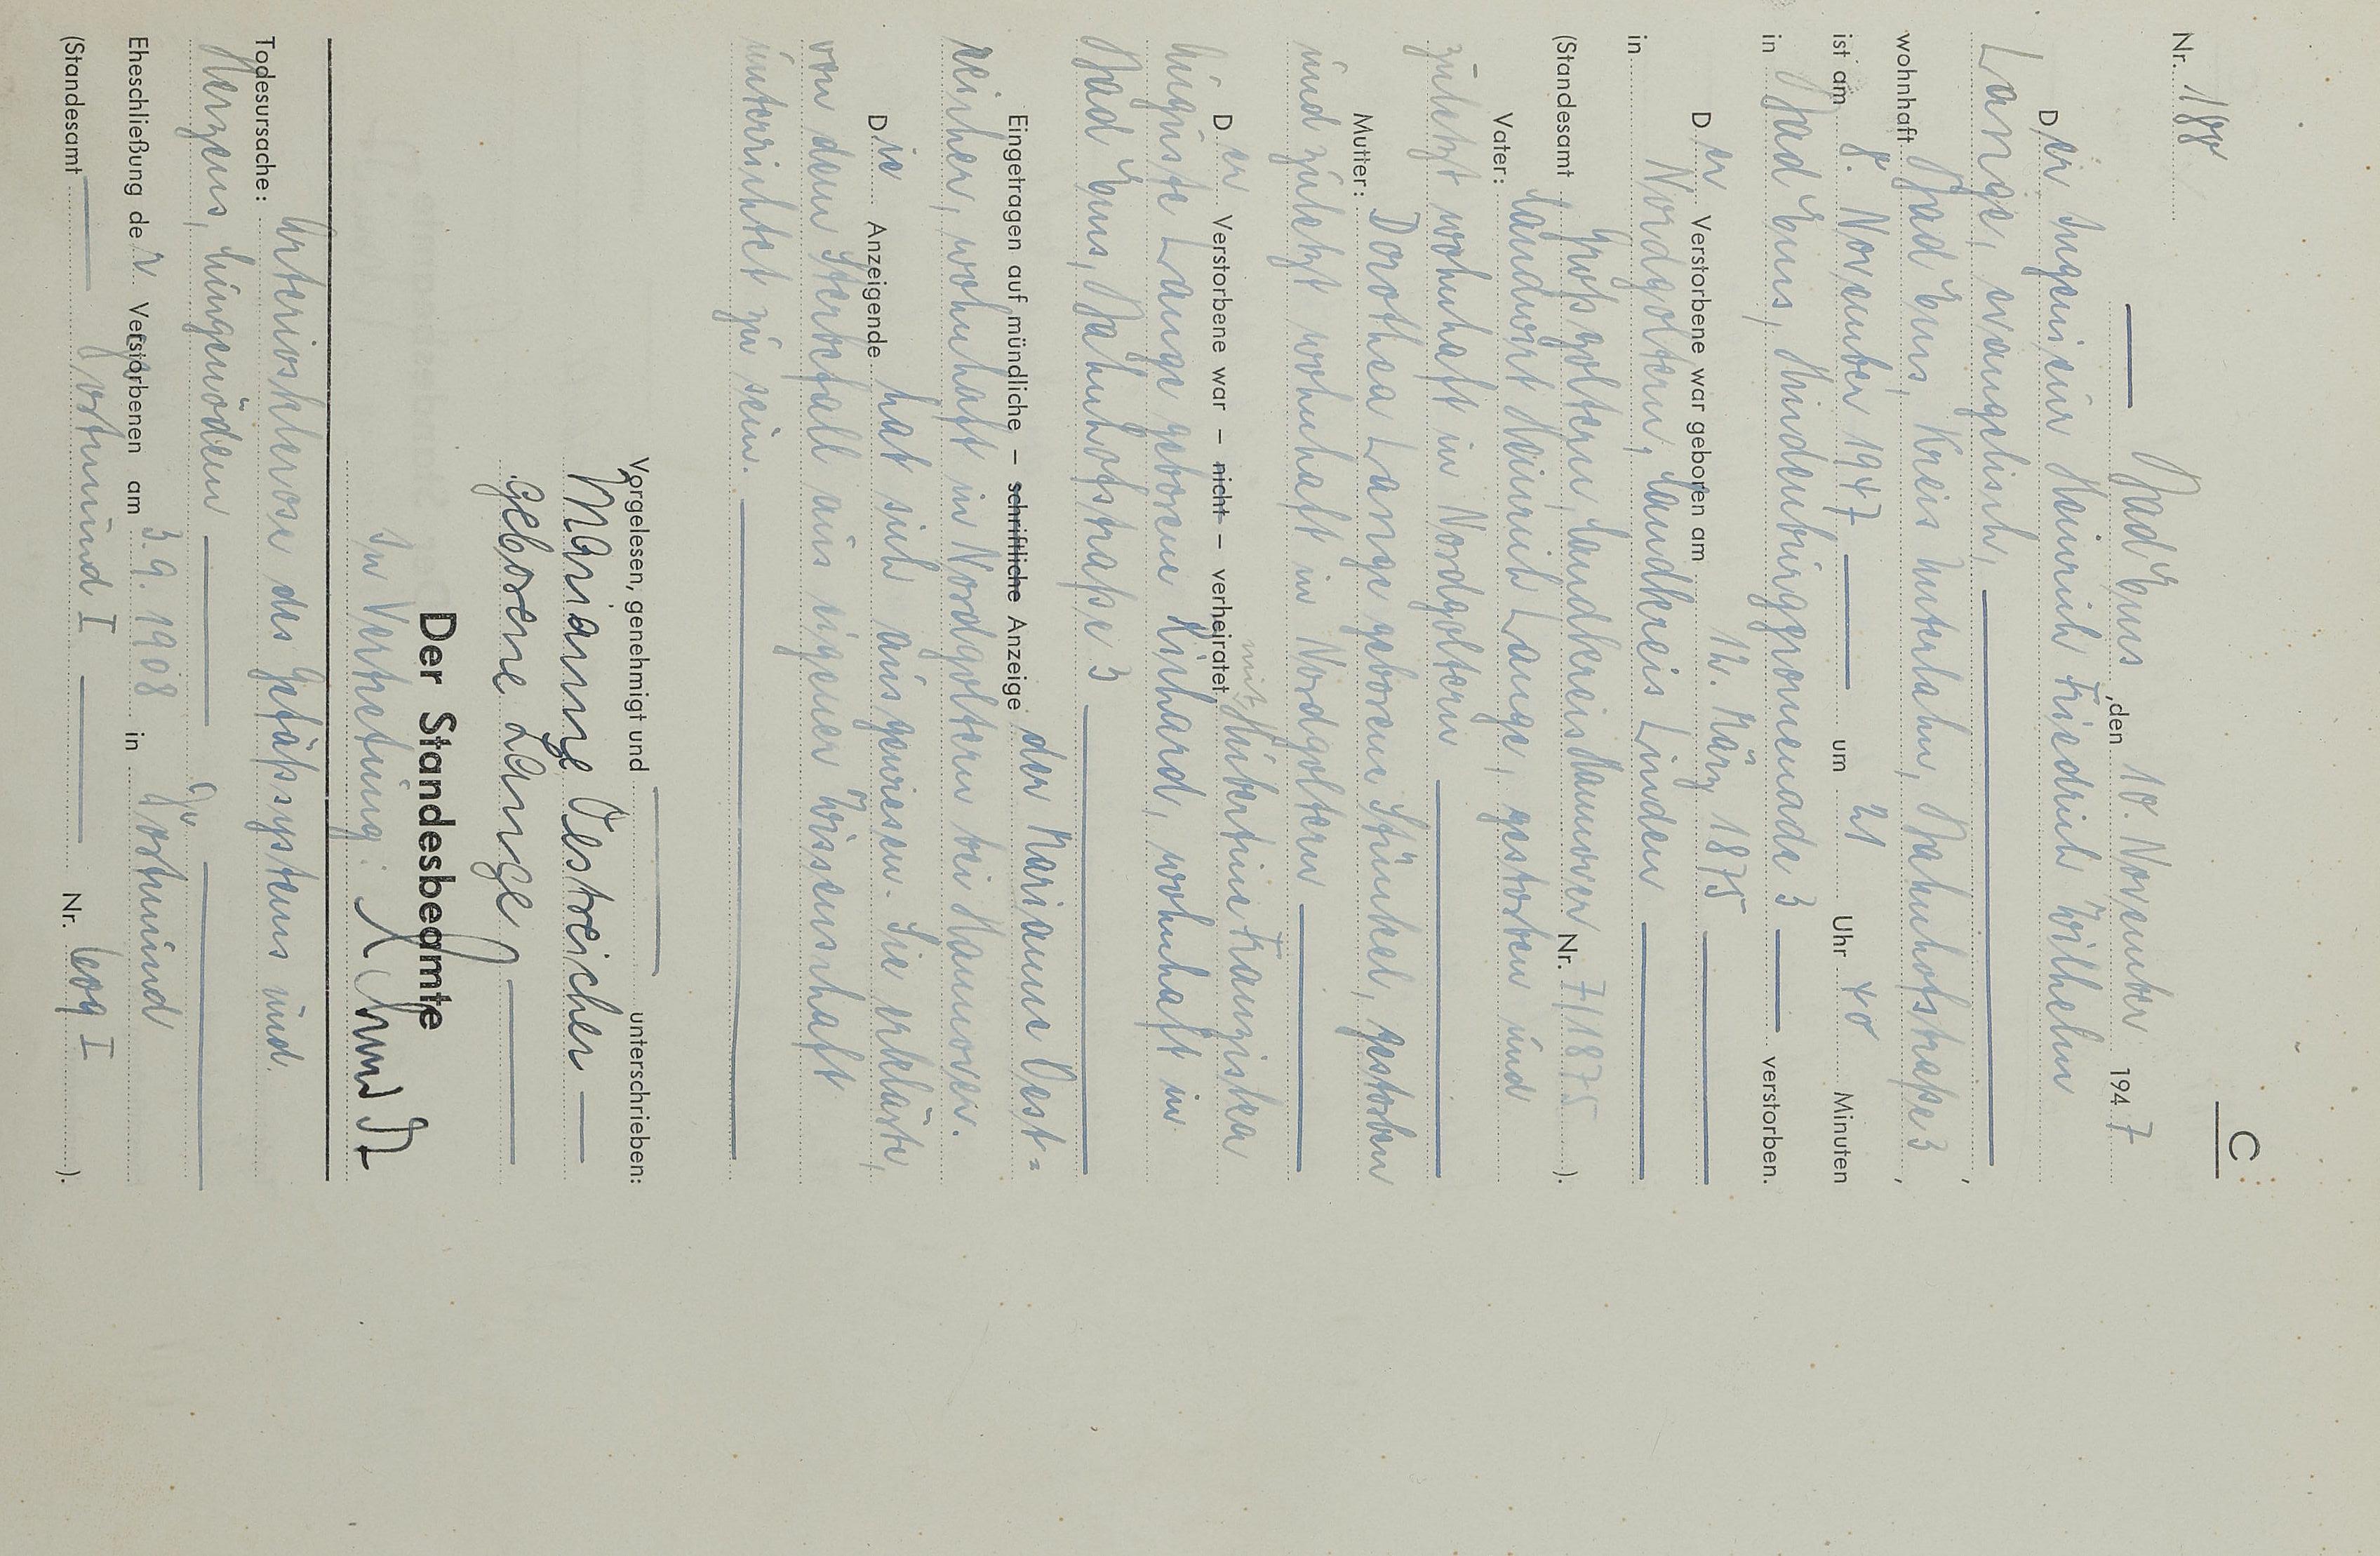 C
Nr. 188
Bad Ems, den 10. November 1947
Der Ingenieur Heinrich Friedrich Wilhelm
Lange, evangelisch,
wohnhaft Bad Ems, Kreis Unterlahn, Bahnhofstraße 3,
ist am 8. November 1947 um 21 Uhr 40 Minuten
in Bad Ems, Hindenburgpromenade 3 verstorben.
Der Verstorbene war geboren am 12. März 1875
in Nordgoltern, Landkreis Linden
(Standesamt Großgoltern, Landkreis Hannover Nr. 7/1875).
Vater: Landwirt Heinrich Lange, gestorben und
zuletzt wohnhaft in Nordgoltern
Mutter: Dorothea Lange geborene Stünkel, gestorben
und zuletzt wohnhaft in Nordgoltern
Der Verstorbene war – nicht – verheiratet mit Hubertine Franziska
Auguste Lange geborene Linhard, wohnhaft in
Bad Ems, Bahnhofstraße 3
Eingetragen auf mündliche – schriftliche Anzeige der Marianne Oest=
reicher, wohnhaft in Nordgoltern bei Hannover.
Die Anzeigende hat sich ausgewiesen. Sie erklärte,
von dem Sterbefall aus eigener Wissenschaft
unterrichtet zu sein.
Vorgelesen, genehmigt und unterschrieben:
Marianne Oestreicher
geborene Lange
Der Standesbeamte
In Vertretung:
Todesursache: Arteriosklerose des Gefäßsystems und
Herzens, Lungenödem
Eheschließung der Verstorbenen am 3.9.1908 in Dortmund
(Standesamt Dortmund I Nr. 1009 I).